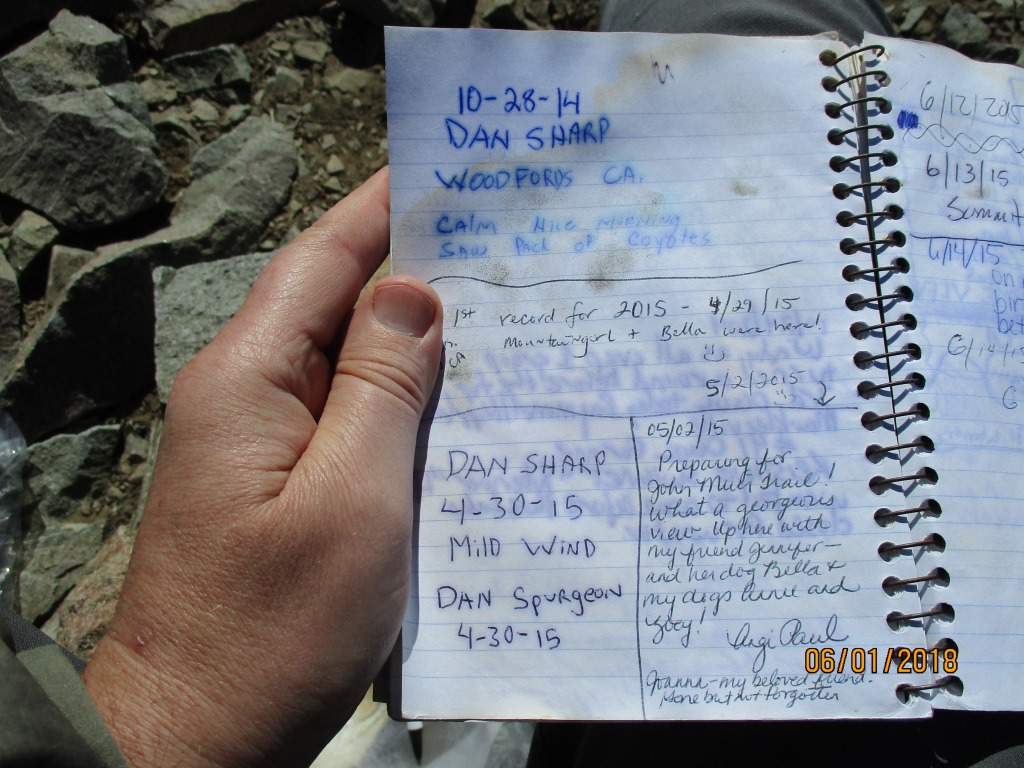 10-28-14
DAN SHARP
WOODFORDS CA.
CALM NICE MORNING
SAW Pack of Coyotes
1st record for 2015 - 4/29/15
Mountaingirl + Bella were here!
5/2/2015
DAN SHARP
4-30-15
MILD WIND
DAN Spurgeon
4-30-15
05/02/15
Preparing for
John Muir Trail!
what a georgeous
view up here with
my friend Jennifer-
and her dog Bella +
my dogs Annie and
Zoey!
Angi Paul
Joanna - my beloved friend.
Gone but not forgotten
6/12/2015
6/13/15
Summit
6/14/15
on
bir
bet
6/14/15
6
06/01/2018